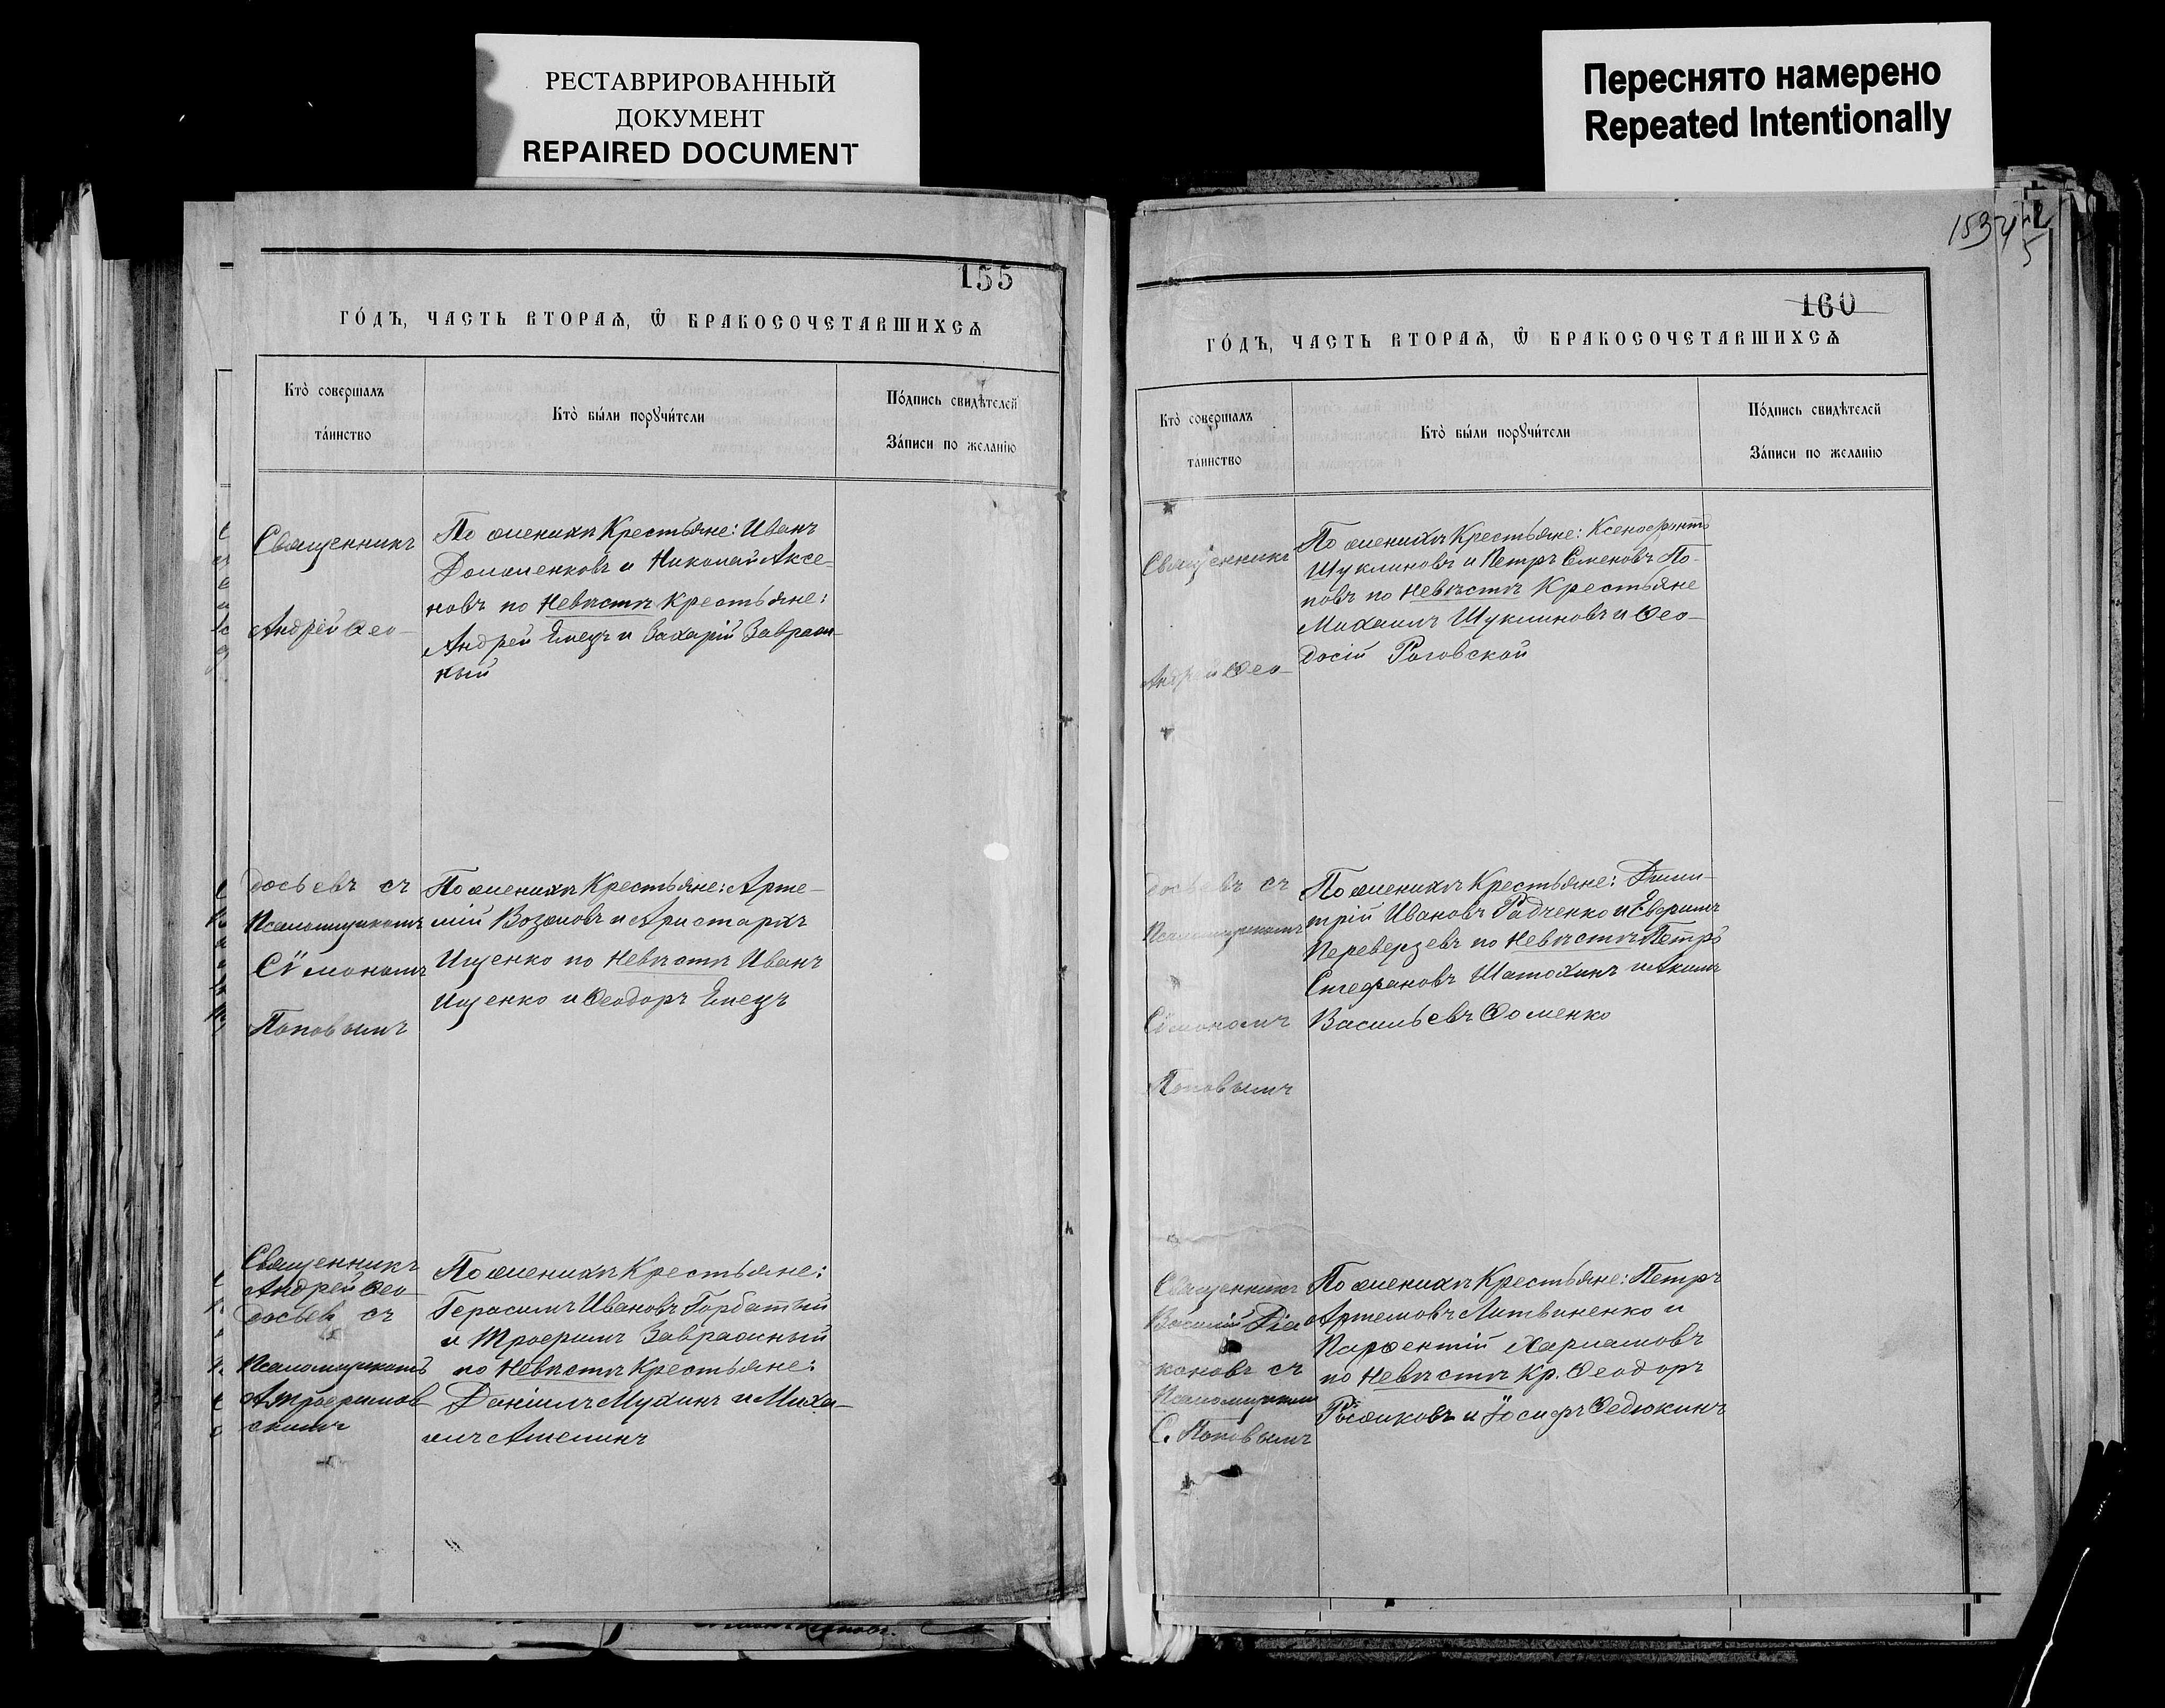 РЕСТАВРИРОВАННЫЙ
ДОКУМЕНТ
REPAIRED DOCUMENT
Переснято намерено
Repeated Intentionally
155
ГО́ДЪ, ЧАСТЬ ВТОРАѦ, Ѿ БРАКОСОЧЕТАВШИХСѦ
Кто̀ совершалъ
та́инство
Кто̀ бы́ли порꙋчи́тели
По́дпись свидѣ́телей
За́писи по желанію
Священникъ
Андрей Ѳео-
По женихѣ Крестьяне: Иванъ
Домоменковъ и Николай Аксе-
новъ по Невѣстѣ Крестьяне:
Андрей Емецъ и Захарій Завраж-
ный
досьевъ съ
Псаломщикомъ
Сѵмономъ
Поповымъ
По женихѣ Крестьяне: Арте-
мій Возжовъ и Аристархъ
Ищенко по Невѣстѣ Иванъ
Ищенко и Ѳеодоръ Емецъ
Священникъ
Андрей Ѳео-
досьевъ съ
Псаломщикомъ
А. Трофимов-
скимъ
По женихѣ Крестьяне:
Герасимъ Ивановъ Горбатый
и Трофимъ Завражный
по Невѣстѣ Крестьяне:
Даніилъ Мухинъ и Миха-
илъ Атепинъ
160
ГО́ДЪ, ЧАСТЬ ВТОРАѦ, Ѿ БРАКОСОЧЕТАВШИХСѦ
Кто̀ совершалъ
та́инство
Кто̀ бы́ли порꙋчи́тели
По́дпись свидѣ́телей
За́писи по желанію
Священникъ
Андрей Ѳео-
По женихѣ Крестьяне: Ксенофонтъ
Шуклиновъ и Петръ Семеновъ По-
повъ по Невѣстѣ Крестьяне
Михаилъ Шуклиновъ и Ѳео-
досій Роговской
досьевъ съ
Псаломщикомъ
Сѵмономъ
Поповымъ
По женихѣ Крестьяне: Дими-
трій Ивановъ Радченко и Ефримъ
Переверзевъ по Невѣстѣ Петръ
Стефановъ Шатохинъ и Акимъ
Васильевъ Ѳоменко
Священникъ
Василій Діа
коновъ съ
Псаломщикомъ
С. Поповымъ
По женихѣ Крестьяне: Петръ
Артемовъ Литвиненко и
Парѳентій Харламовъ
по Невѣстѣ Кр. Ѳеодоръ
и Іосифъ Ѳедюкинъ